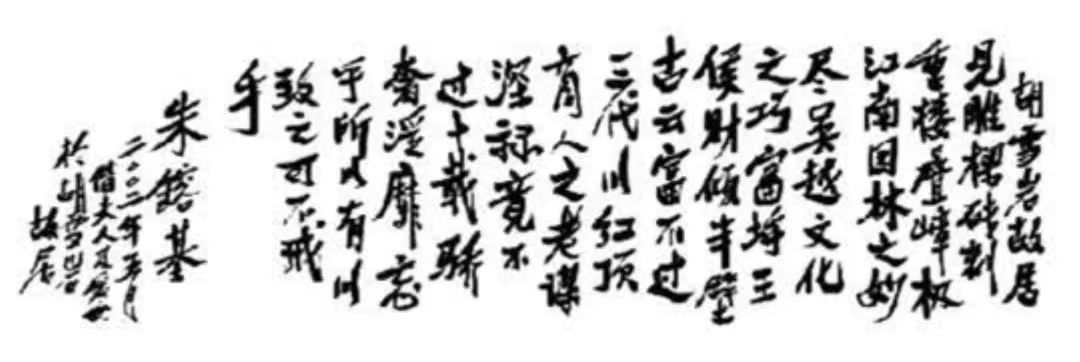 胡雪岩故居
见雕樑砖刻
重楼叠嶂极
江南园林之妙
尽吴越文化
之巧富埒王
侯财倾半壁
古云富不过
三代以红顶
商人之老谋
深算竟不
过十载骄
奢淫靡忘
乎所以有以
致之可不戒
乎
朱镕基
二〇〇二年五月
偕夫人及家女
於胡雪岩
故居